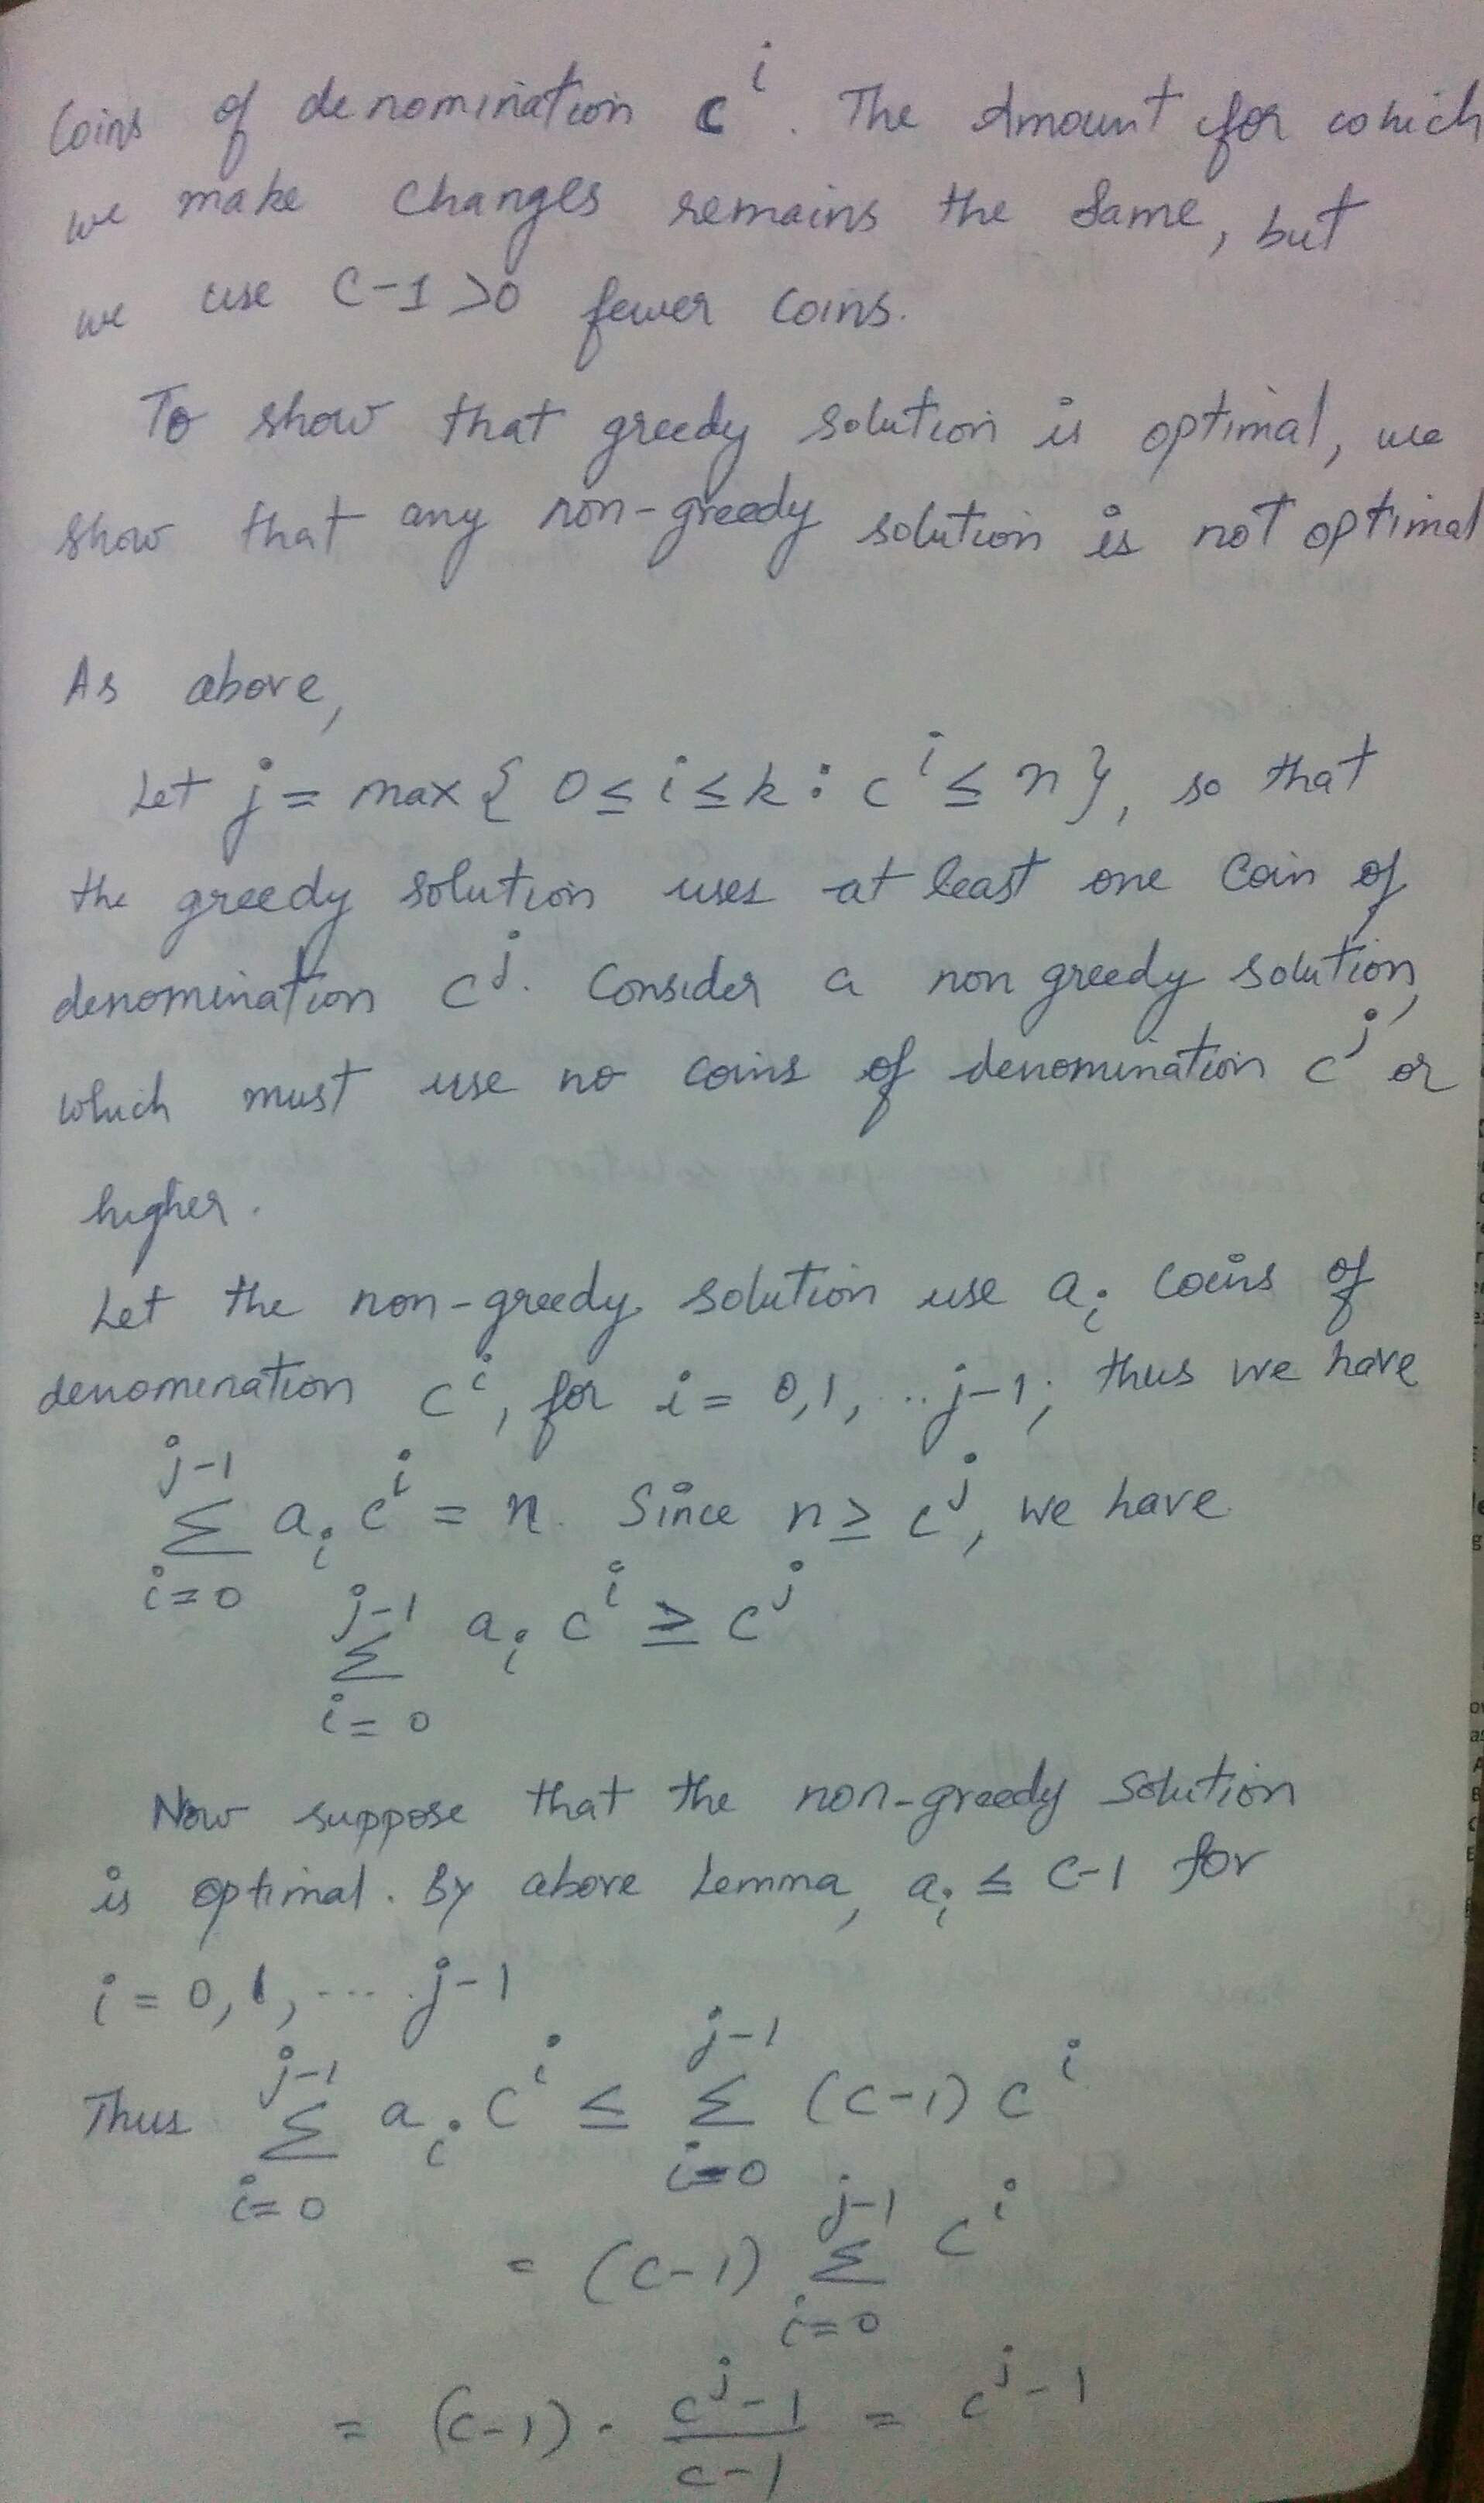 Coins of denomination c^i. The Amount for which
we make changes remains the same, but
we use C-1 >0 fewer coins.
To show that greedy solution is optimal, we
show that any non-greedy solution is not optimal
As above,
Let j = max { 0 ≤ i ≤ k : c^i ≤ n }, so that
the greedy solution uses at least one coin of
denomination c^j. Consider a non greedy solution,
which must use no coins of denomination c^j or
higher.
Let the non-greedy solution use a_i coins of
denomination c^i, for i = 0,1, ... j-1; thus we have
∑_{i=0}^{j-1} a_i c^i = n. Since n ≥ c^j, we have
∑_{i=0}^{j-1} a_i c^i ≥ c^j
Now suppose that the non-greedy solution
is optimal. By above Lemma, a_i ≤ c-1 for
i = 0, 1, .... j-1
Thus ∑_{i=0}^{j-1} a_i c^i ≤ ∑_{i=0}^{j-1} (c-1) c^i
= (c-1) ∑_{i=0}^{j-1} c^i
= (c-1) · (c^j - 1)/(c-1) = c^j - 1